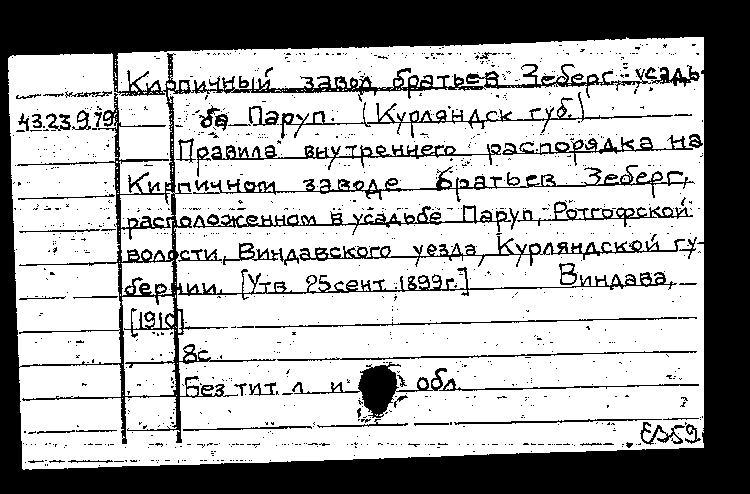 Кирпичный завод братьев Зеберг, усадь-
43.23.9.79 ба Паруп. (Курляндск губ.)
Правила внутреннего распорядка на
Кирпичном заводе братьев Зеберг,
расположенном в усадьбе Паруп, Ротгофской
волости, Виндавского уезда, Курляндской гу-
бернии. [Утв. 25 сент. 1899г.] Виндава,
[1910]
8с.
Без тит. л. и обл.